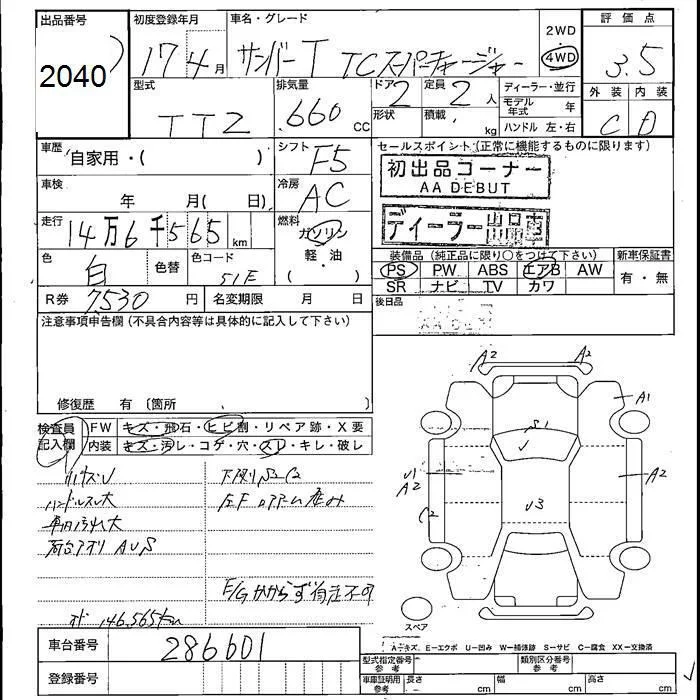 出品番号 初度登録年月 車名・グレード 2WD 評価点
2040 17 4月 サンバーT TCスーパーチャージャー 4WD 3.5
型式 排気量 ドア 2 定員 2人 ディーラー・並行 外装 内装
TT2 .660 CC 形状 積載 kg モデル年式 年 C D
ハンドル 左・右
車歴 自家用・( ) シフト F5 セールスポイント(正常に機能するものに限ります)
初出品コーナー
AA DEBUT
車検 年 月( 日) 冷房 AC
ディーラー出品車
走行 14万6千565km 燃料 ガソリン
軽・油
( )
色 白 色替 色コード 51E
装備品(純正品に限り○をつけて下さい) 新車保証書
PS PW ABS エアB AW 有・無
SR ナビ TV カワ
R券 7,530円 名変期限 月 日 後日品
注意事項申告欄(不具合内容等は具体的に記入して下さい)
修復歴 有 〔箇所 〕
検査員 FW キズ・飛石・ヒビ割・リペア跡・X要
記入欄 内装 キズ・汚レ・コゲ・穴・スレ・キレ・破レ
A2 A2
A1
S1
U1
A2
A2
C2
U3
ハンドルスレ大
車内汚れ大
荷台アオリ AUS
E/Gかからず自走不可
146,565km
スペア
A=キズ E=エクボ U=凹み W=補修跡 S=サビ C=腐食 XX=交換済
車台番号 286601
型式指定番号 参考 類別区分番号 参考
登録番号
車庫証明用 参考 長さ cm 幅 cm 高さ cm